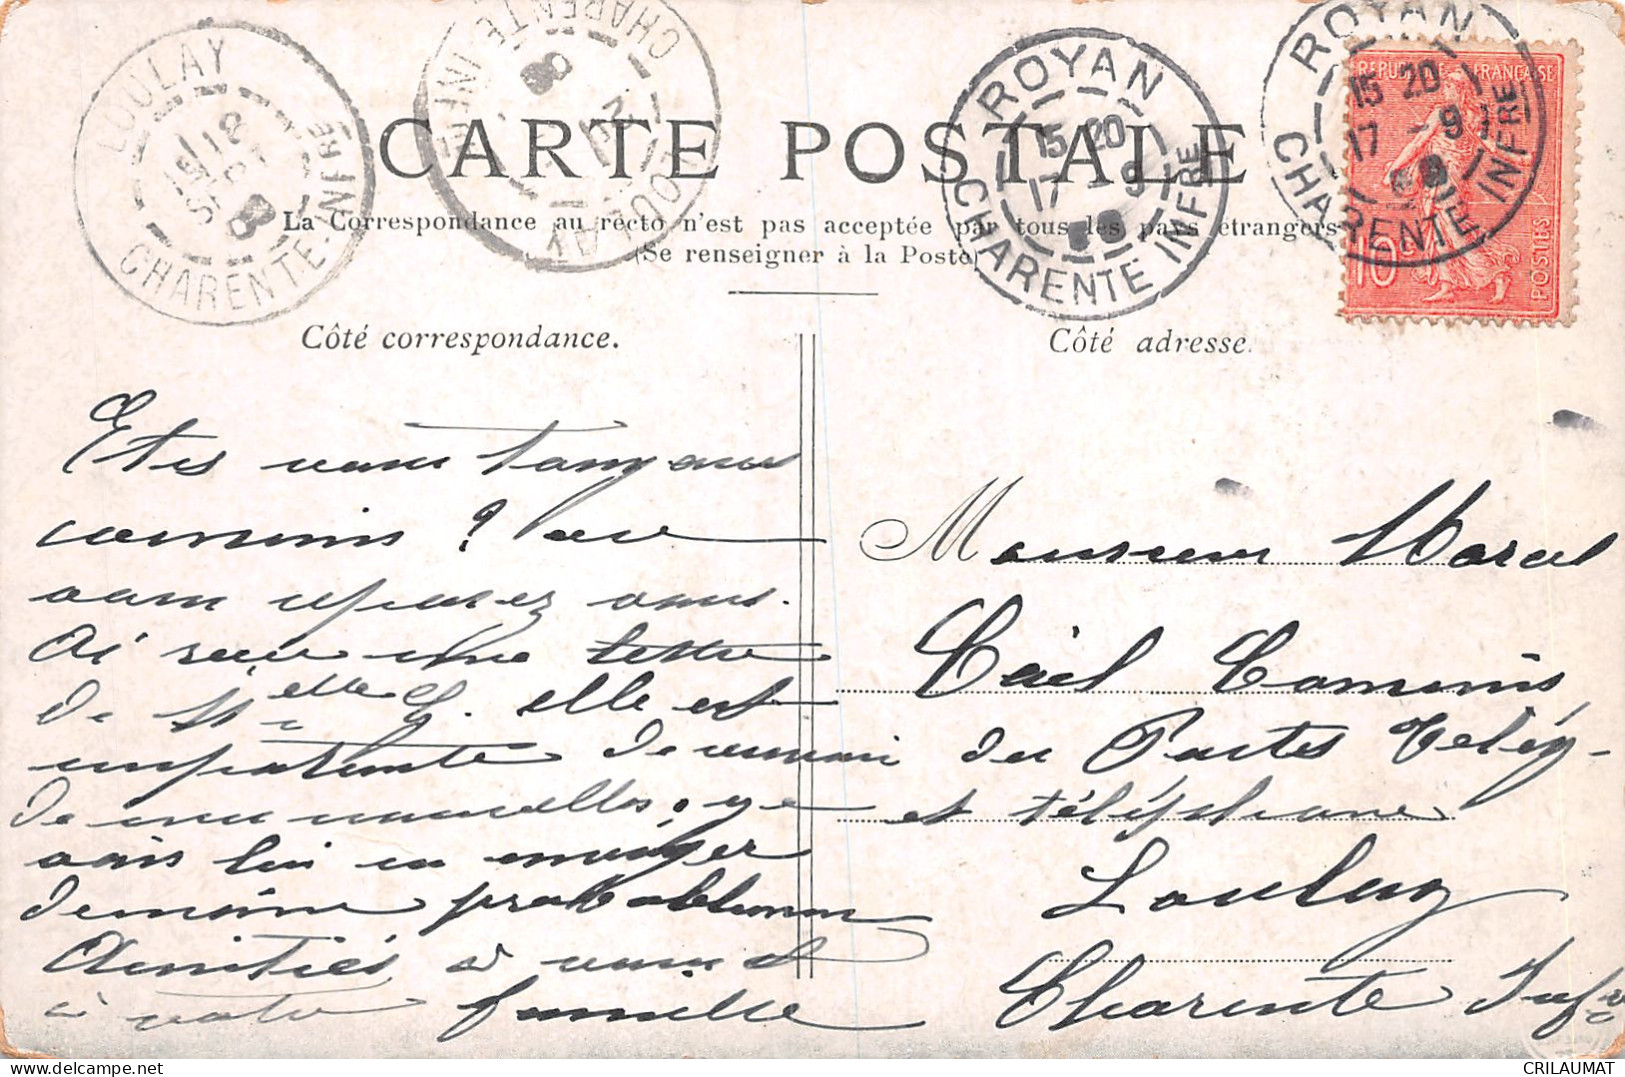 LOULAY
18
SEPT
08
CHARENTE-INFRE
LOULAY
CHARENTE-INFRE
08
ROYAN
15 20
17 - 9
08
CHARENTE INFRE
ROYAN
15 20
17 - 9
08
CHARENTE INFRE
REPUBLIQUE FRANÇAISE
10c
POSTES
CARTE POSTALE
La Correspondance au recto n'est pas acceptée par tous les pays étrangers
(Se renseigner à la Poste)
Côté correspondance.
Côté adresse.
Etes vous toujours
commis ? ou
vous reposez vous.
Ai reçu une lettre
de Melle G. elle est
impatiente de
de nouvelles. je
vais lui en envoyer
demain probablement
Amitiés à vous et
à votre famille
Monsieur Marcel
Commis
des Postes Télég-
et téléphone
Loulay
Charente Infre
CRILAUMAT